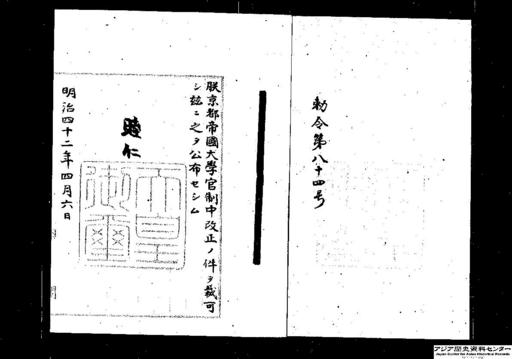 朕京都帝國大學官制中改正ノ件ヲ裁可
シ玆ニ之ヲ公布セシム
睦仁
天皇
御璽
明治四十二年四月六日
内閣
勅令第八十四号
アジア歴史資料センター
Japan Center for Asian Historical Records